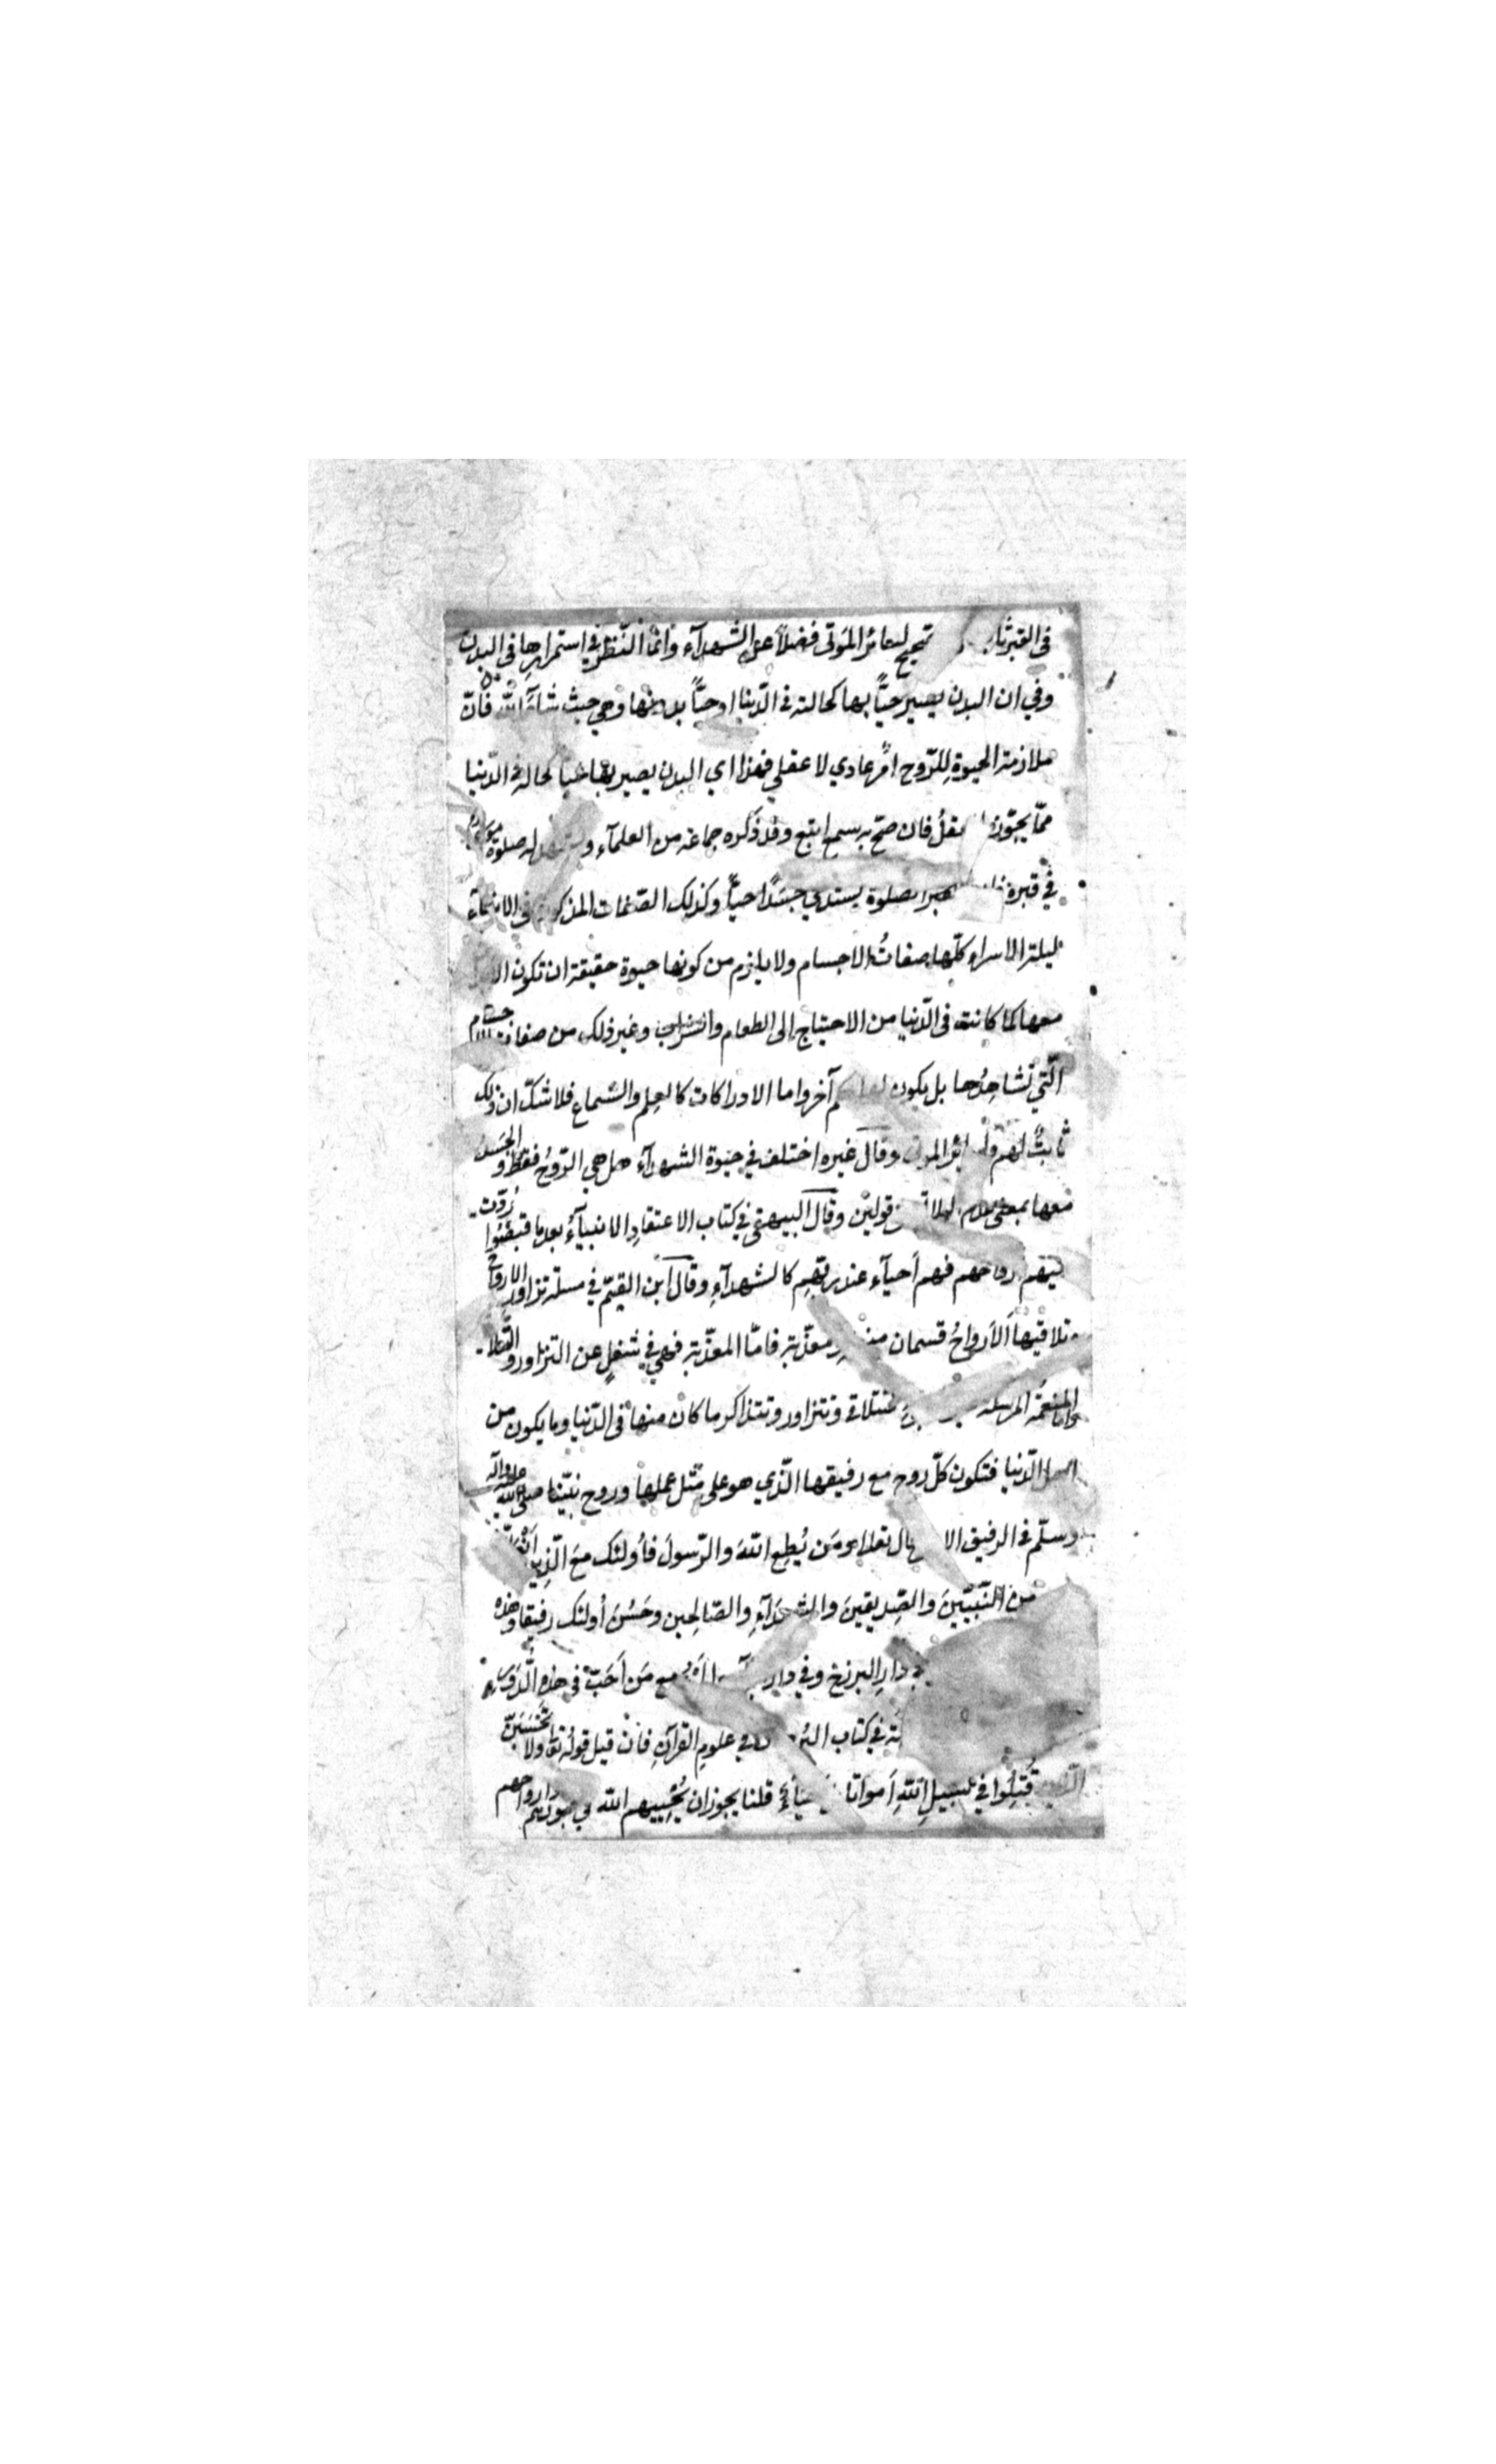 فى القبر ثا لسائر المَوتى فضلاً عن الشهدآء وانّما النّظر في استمرارِها فى البدن
وفي ان البدن يصير حيًّا بها كحالته في الدّنيا او حيًّا بدونها وهي حيث شآءَ الله فانّ
ملازمة الحيوة لِلرّوح امرٌ عادي لا عقلي فهذا اي البدن يصير بها حيا كحاله في الدّنيا
ممّا يجوّزه العقلُ فان صحّ به سمع اتبع وقد ذكره جماعة من العلمآء صلوة موسى
في قبره الصلوة يستدعي جسَدًا حيًّا وكذلك الصّفات المذكورة في الانبيآء
ليلة الاسراء كلّها صفاتُ الاجسام ولا يلزم من كونها حيوة حقيقة ان تكون
معها كما كانت فى الدّنيا من الاحتياج إلى الطعام والشراب وغير ذلك من صفات الاجسام
الّتي نشاهِدُها بل يكون لها حكم آخر واما الادراكات كالعِلم والسّماع فلا شكّ ان ذلك
ثابتٌ لهم ولسائر الموتى وقال غيره اختلف في حيوة الشهدآء هل هي الرّوحُ فقط او الجَسَد
معها بمعنى قولين وقال البيهقي في كتاب الاعتقادِ الانبيآءُ بعدما قبضُوا رُدّت
اليهم ارواحهم فهم اَحيآء عند ربّهِم كالشهدآءِ وقال ابن القيّم في مسئلة تزاورِ الارواح
وتلاقيها اَلاَرواحُ قسمان معذّبة فامّا المعذّبة فهي في شُغلٍ عن التزاور والتّلاقي
وامّا المنعّمَة المرسلة تتلاقى وتتزاور وتتذاكر ما كان منها فى الدّنيا وما يكون من
اهل الدّنيا فتكون كلّ روح مع رفيقها الّذي هو على مثل عملِها وروح نبيّنا صلى الله عليه وآله
وسلّم في الرفيق الا قال تعالى ومَن يُطِع اللهَ والرّسولَ فأُولئك معَ الّذِين اَنْعَمَ
مِن النّبيّينَ والصِّدِيقينَ والشهَدَآءِ والصّالِحِين وحَسُنَ اُولئك رفيقا وهذه
دارِ البرزخ وفي دار مع مَن اَحَبّ في هذه الدّور
في كتاب البُرهان في علومِ القرآنِ فان قيل قولُه تعالى ولا تَحْسَبَنّ
الّذين قُتِلُوا في سبيلِ اللهِ اَمواتا اَحيآءٌ قلنا يجوز ان يُحْيِيهم الله في قبورهم وارواحهم